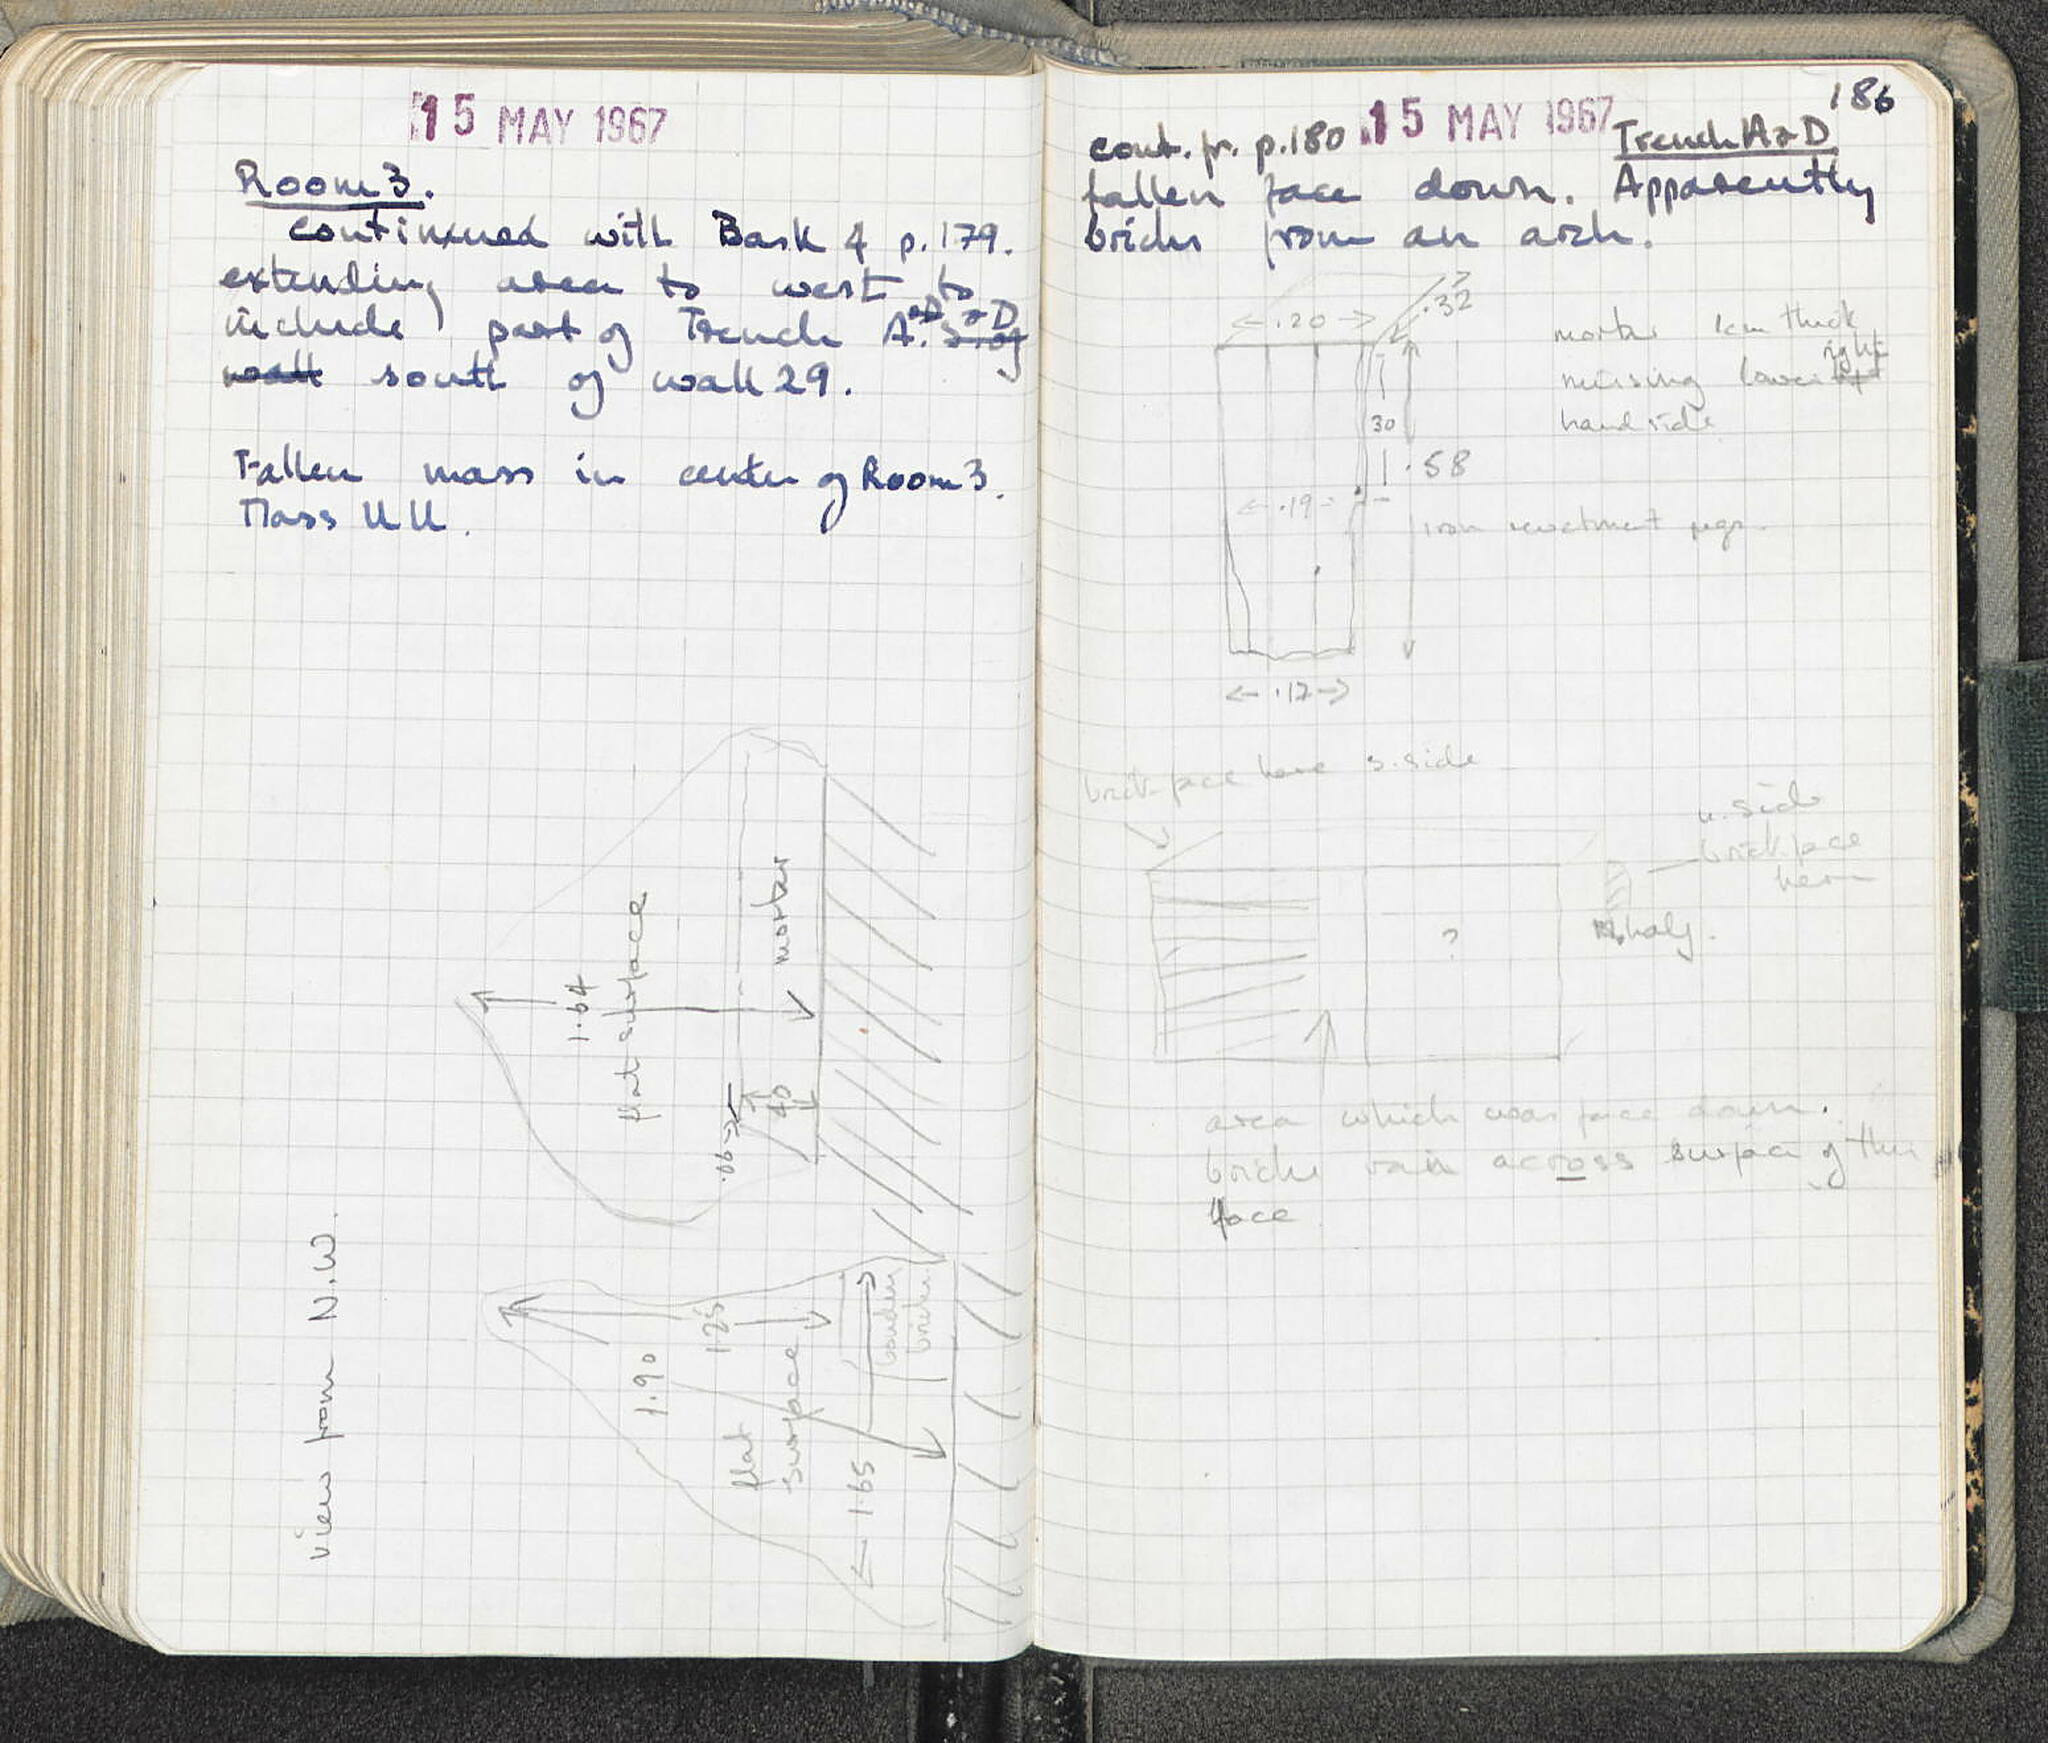 15 MAY 1967
Room 3.
continued with Bask 4 p. 179.
extending area to west to
include part of Trench A2D
south of wall 29.
Fallen mass in center of Room 3.
Mass UU.
1.64
flat surface
mortar
.06
40
view from N.W.
1.90
1.25
flat
surface
1.65
bricks
186
15 MAY 1967
cont. fr. p. 180
Trench A2D
fallen face down. Apparently
bricks from an arch.
.20
.32
mortar 1cm thick
missing lower right
hand side
30
.58
.19
iron revetment pegs.
.12
brick face here s. side
n. side
brick face
here
?
N. half.
area which was face down.
bricks ran across surface of this
face